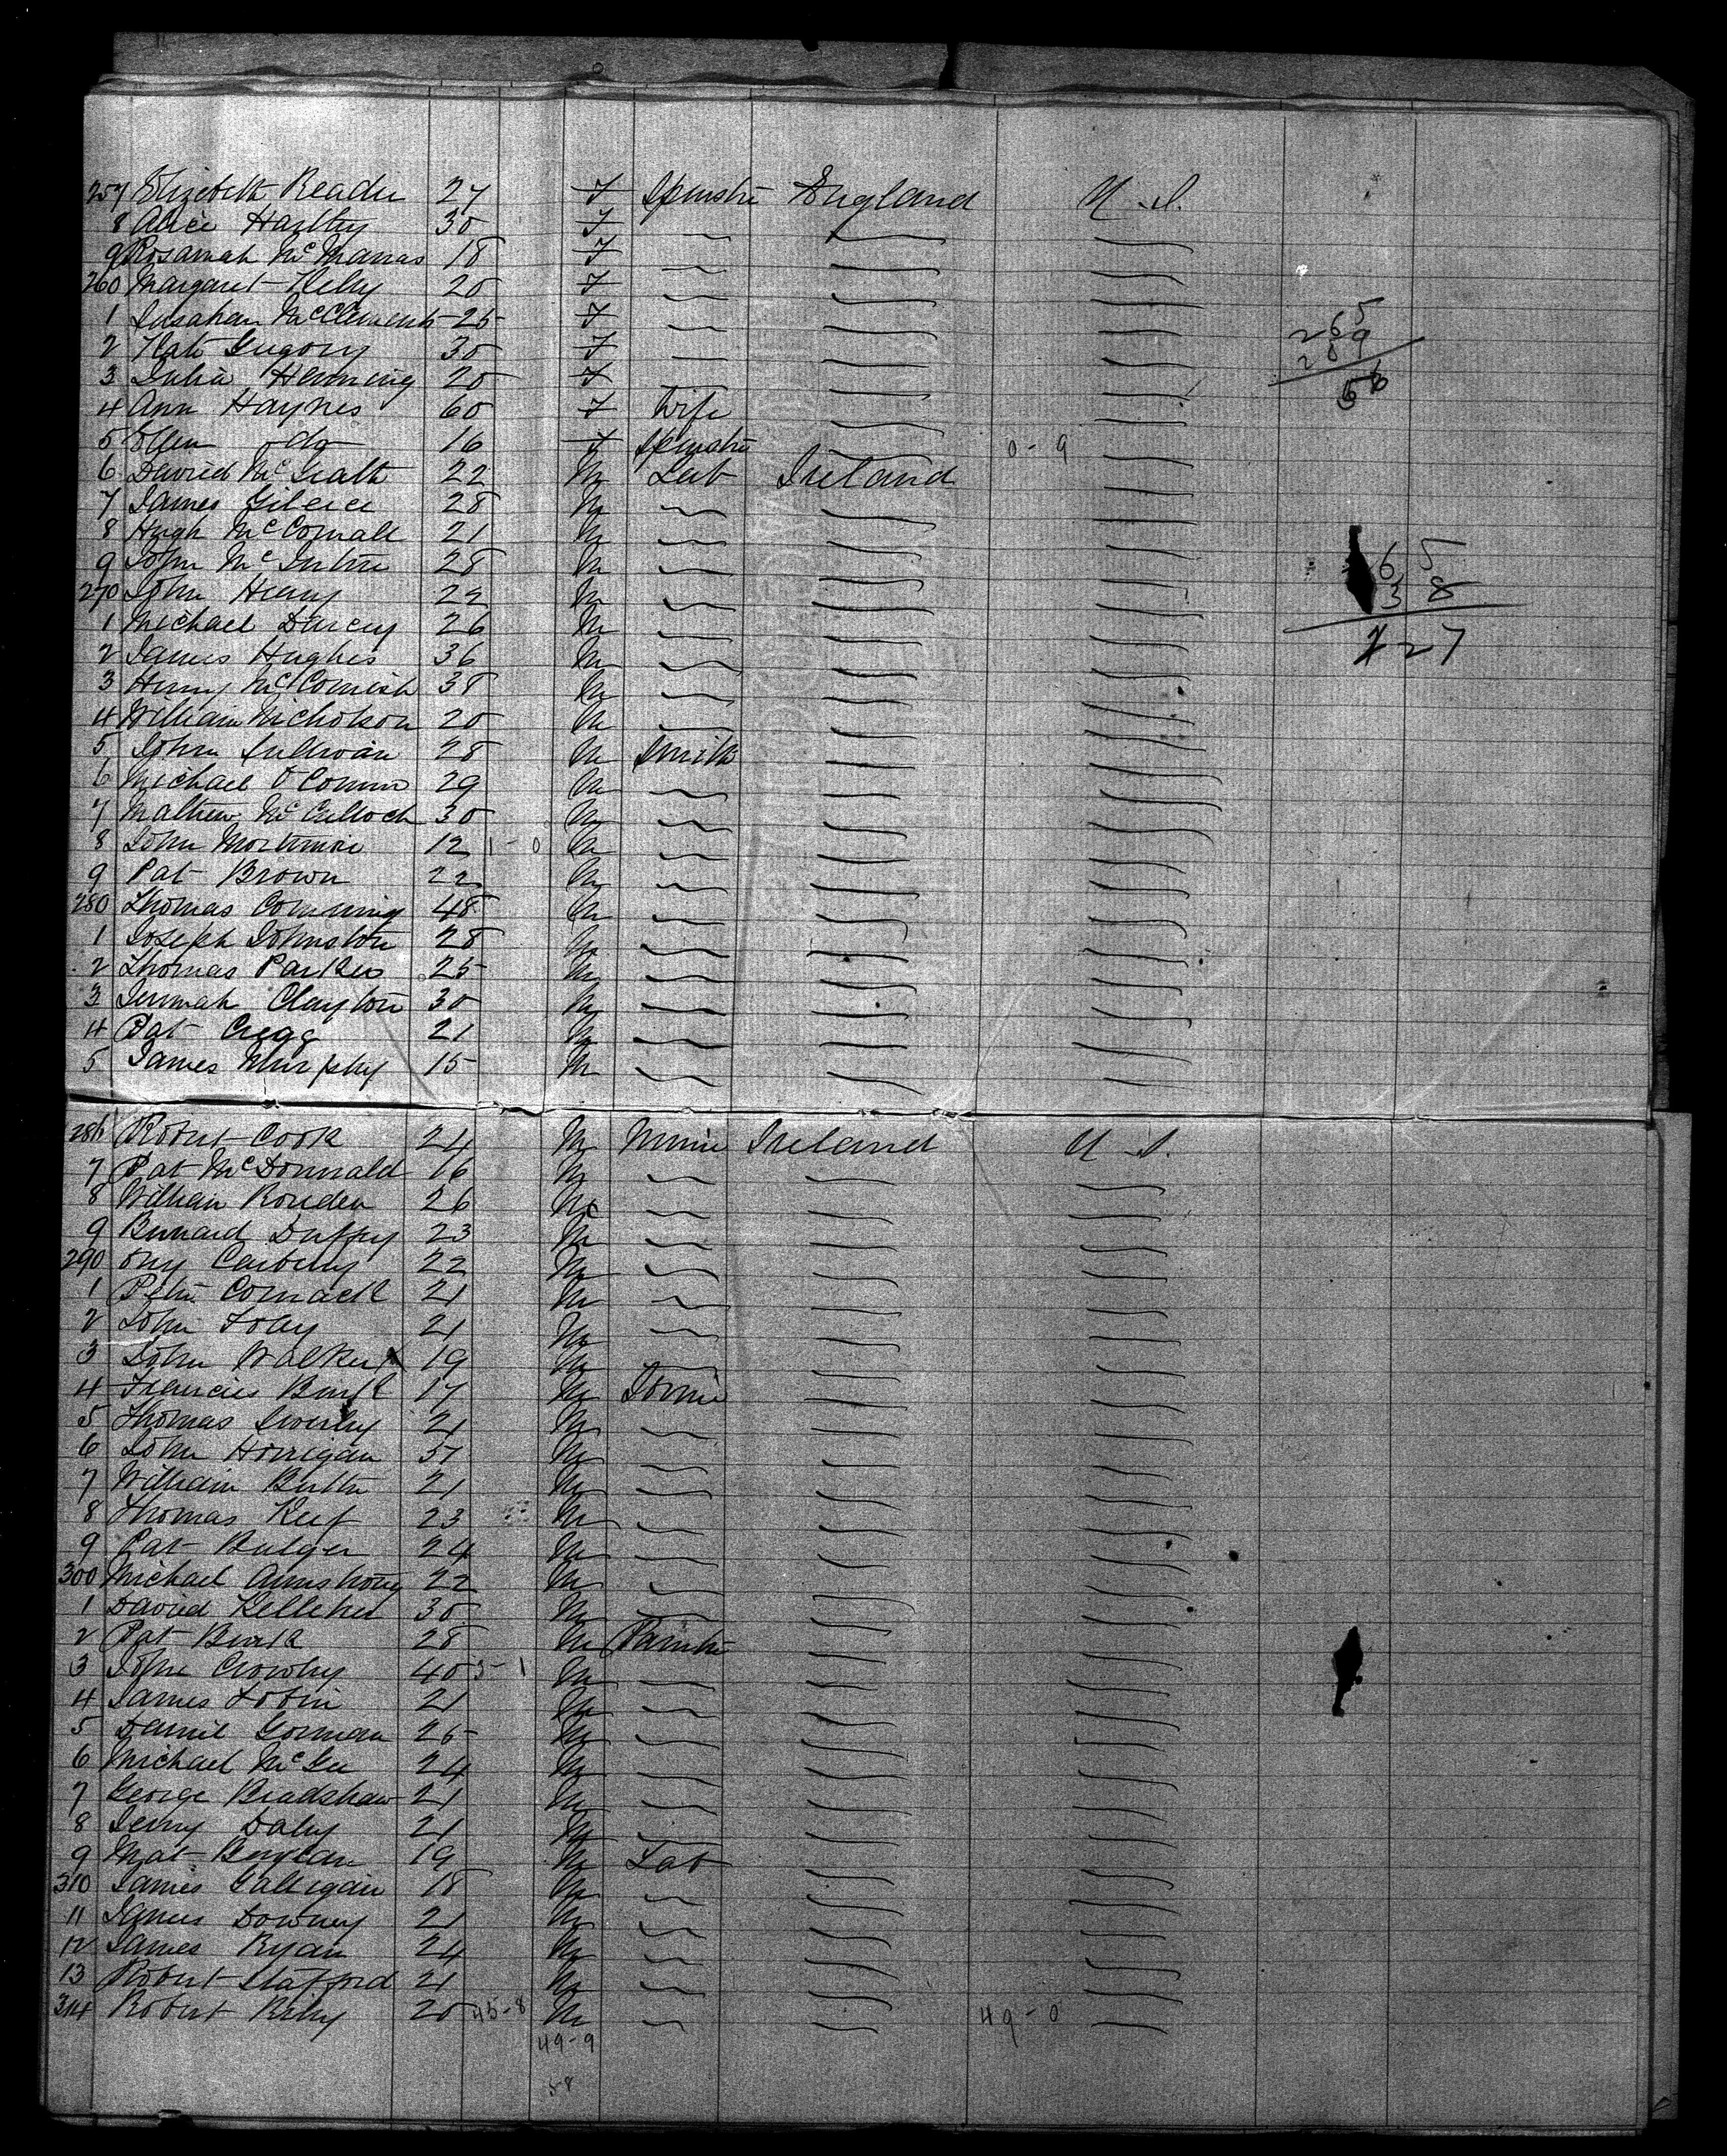 257 Elizebeth Reader 27 F Spinster England U.S.
8 Alice Hartley 30 F
9 Rosannah McManas 18 F
260 Margaret 20 F
1 Susahan McClements 25 F
2 Kate Gregory 30 F
3 Julia Henning 20 F
4 Ann Haynes 60 F Wife
5 Ellen do 16 F Spinster 0-9
6 David McGrath 22 M Lab Ireland
7 James 28 M
8 Hugh McConall 21 M
9 John McIntire 28 M
270 John Heany 22 M
1 Michael Darcey 26 M
2 James Hughes 36 M
3 Henry McComish 38 M
4 William Nicholson 20 M
5 John Sullivan 28 M Smith
6 Michael O Connor 29 M
7 Mathew McCulloch 30 M
8 John Mortimore 12 1-0 M
9 Pat Brown 22 M
280 Thomas Comming 48 M
1 Joseph Johnston 28 M
2 Thomas Parker 25 M
3 Jeremiah Clayton 30 M
4 Pat Cregg 21 M
5 James Murphy 15 M
286 Robert Cook 24 M Miner Ireland U.S.
7 Pat McDonnald 16 M
8 William 26 M
9 Bernard Duffey 23 M
290 Carberry 22 M
1 Peter Cormack 21 M
2 John Foley 21 M
3 John Walker 19 M
4 Francies Burk 17 M
5 Thomas 21 M
6 John Horrigan 37 M
7 William Butler 21 M
8 Thomas Keef 23 M
9 Pat Bulger 24 M
300 Michael Armstrong 22 M
1 David Kelleher 30 M
2 Pat Burk 28 M Painter
3 John Crowley 40 3-1 M
4 James Tobin 21 M
5 Daniel Gorman 25 M
6 Michael McGee 24 M
7 George Bradshaw 21 M
8 Jerry Daley 21 M
9 Mat 19 M Lab
310 James Galligan 18 M
11 James Downey 21 M
12 James Ryan 24 M
13 Robert Stafford 21 M
314 Robert Riley 20 45-8 M 49-0
49-9
58